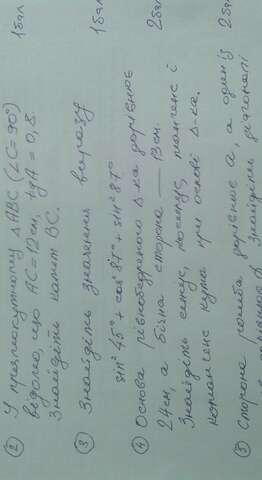 ② У прямокутному ΔABC (∠C=90°) 1 бал
відомо, що AC=12см, tgA = 0,8.
Знайдіть катет BC.
③ Знайдіть значення виразу 1 бал
sin² 45° + cos² 87° + sin² 87°
④ Основа рівнобедреного Δ-ка дорівнює 2 бали
24см, а бічна сторона — 13см.
Знайдіть синус, косинус, тангенс і
котангенс кута при основі Δ-ка.
⑤ Сторона ромба дорівнює a, а один із 2 бал
дорівнює α. Знайдіть діагоналі